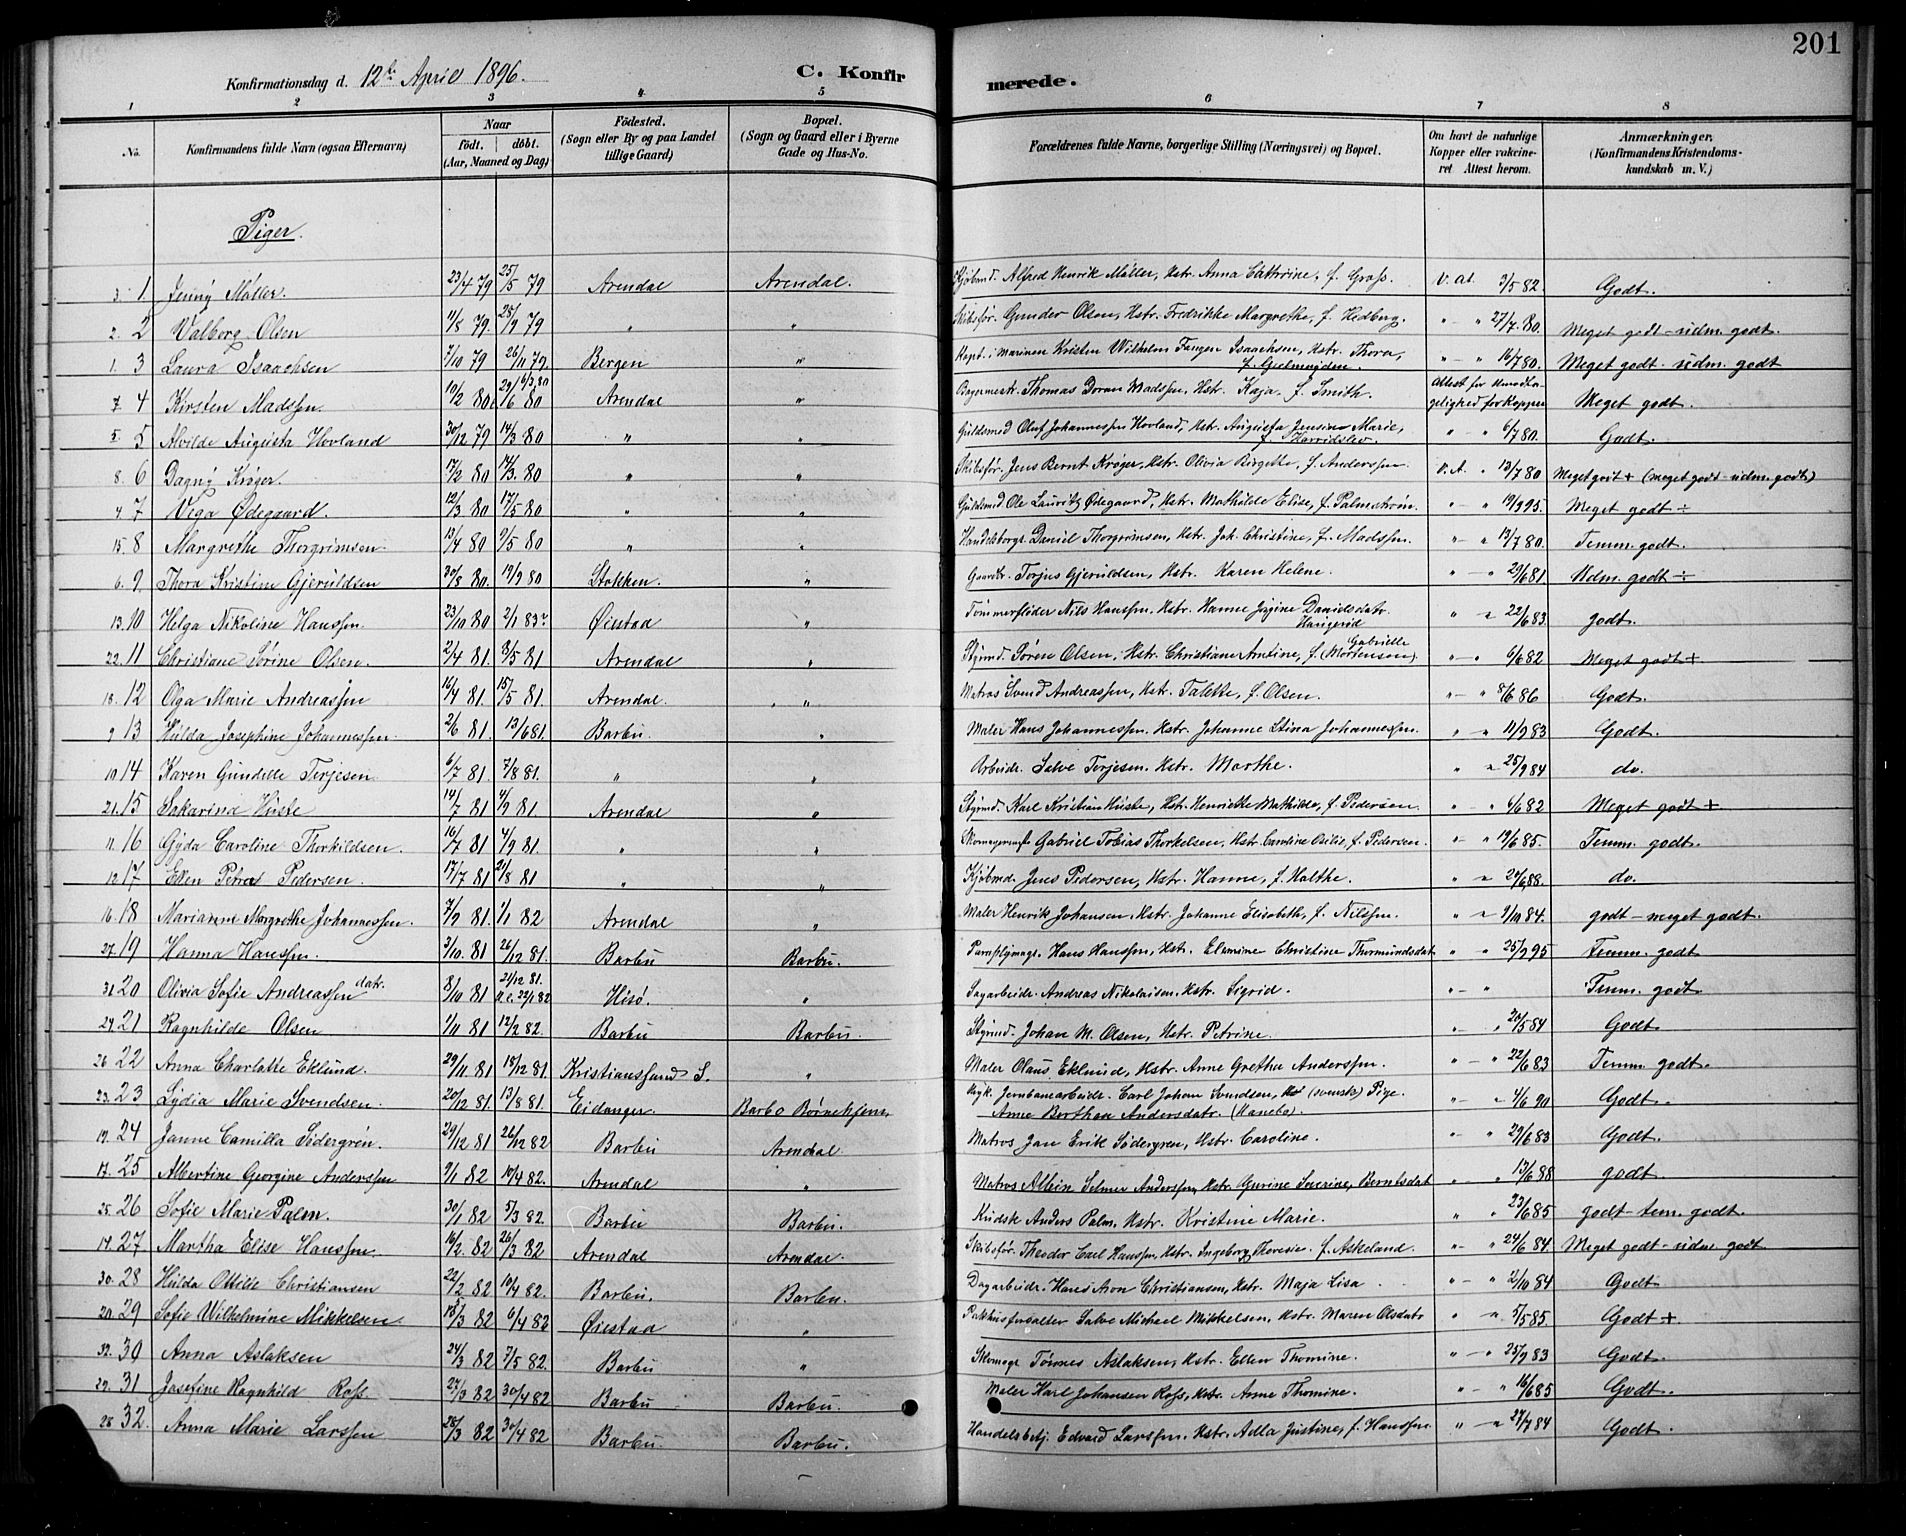 201
Konfirmationsdag d. 12te April 1896.
C. Konfir
merede.
1 2 3 4 5 6 7 8
No.
Konfirmandens fulde Navn (ogsaa Efternavn)
Naar
födt. döbt.
(Aar, Maaned og Dag)
Födested.
(Sogn eller By og paa Landet
tillige Gaard)
Bopæl.
(Sogn og Gaard eller i Byerne
Gade og Hus-No.
Forældrenes fulde Navne, borgerlige Stilling (Næringsvei) og Bopæl.
Om havt de naturlige
Kopper eller vakcine-
ret Attest herom.
Anmærkninger.
(Konfirmandens Kristendoms-
kundskab m. V.)
Piger.
3. 1 Jenny Møller. 23/4 79 25/5 79 Arendal Arendal. Kjøbmd. Alfred Henrik Møller, Hstr. Anna Cathrine, f. Gross. V. at. 3/5 82. Godt.
2. 2 Valborg Olsen 11/8 79. 28/9 79 " " Skibsfør. Gunder Olsen, Hstr. Fredrikke Margrethe, f. Hedberg. " " 27/7 80. Meget godt - udm. godt.
1. 3 Laura Isaachsen 7/10 79 26/11 79. Bergen " Kapt. i Marinen Kristen Wilhelm Fangen Isaachsen, Hstr. Thora, f. Gjelmuyden. " - " 16/7 80. Meget godt - udm. godt
7. 4 Kirsten Madssen. 10/2 80. 29/6 80 6/3 80 Arendal " Bagermestr. Thomas Doran Madssen, Hstr. Kaja, f. Smith. Attest for Umodta-
gelighed for Kopper Meget godt.
5. 5 Alvilde Augusta Hovland 30/12 79 14/3 80 " " Guldsmed Oluf Johannessen Hovland, Hstr. Augusta Jensine Marie, f. Harridslev. " - " 6/7 80. Godt.
8. 6 Dagny Krøger. 17/2 80 14/3. 80 " " Skibsfør. Jens Bernt Krøger, Hstr. Olivia Birgitte, f. Anderssen. V. A. " 13/7 80 Meget godt + (meget godt - udm. godt)
4. 7 Viga Ødegaard 12/3 80 17/5 80 " " Guldsmed Ole Lauritz Ødegaard, Hstr. Mathilde Elise, f. Palmstrøm. " - " 19/9 95. Meget godt ÷
15. 8 Margrethe Thorgrimsen 13/4 80 9/5 80 " " Handelsborgr. Daniel Thorgrimsen, Hstr. Joh. Christine, f. Madssen. " - " 13/7 80. Temm. godt.
6. 9. Thora Kristine Gjeruldsen 30/8 80. 19/9 80 Stokken. " Gaardbr. Torjus Gjeruldsen, Hstr. Karen Helene. " - " 29/6 81 Udm. godt ÷
13. 10 Helga Nikoline Hanssen. 23/10 80 2/1 83 Øiestad " Tømmerfløder Nils Hanssen, Hstr. Hanne Jøgine Danielsdatr. " " 22/6 83. godt.
22. 11 Christiane Sørine Olsen. 2/4 81. 8/5 81 Arendal " Styrmd. Søren Olsen, Hstr. Christiane Antine, Gabrielle f. (Mortensen). " - " 6/6 82 Meget godt +
18. 12 Olga Marie Andreassen 16/4 81. 15/5 81. Arendal. " Matros Svend Andreassen, Hstr. Talette, f. Olsen. " - " 8/6 86 Godt.
9 13 Hulda Josephine Johannessen. 2/6 81. 13/6 81. Barbu. " Maler Hans Johannessen. Hstr. Johanne Stina Johannessen. " - " 11/9 83 Godt.
10 14 Karen Gundelle Terjesen. 6/7 81 7/8 81. " " Arbeidr. Salve Terjesen. Hstr. Marthe. " " 25/9 84 do.
21. 15 Sakarina Huste 14/7 81 4/9 81. Arendal " Styrmd. Karl Kristian Huste, Hstr. Henriette Mathilde, f. Pedersen. " - " 6/6 82 Meget godt +
11. 16 Gyda Caroline Thorkildsen. 16/7 81 4/9 81. " " Skomager Gabriel Tobias Thorkelsen, Hstr. Caroline Osilie, f. Pedersen. " - " 19/6 85. Temm. godt.
12 17 Ellen Petra Pedersen. 17/7 81 21/8 81 " " Kjøbmd. Jens Pedersen, Hstr. Hanne, f. Malthe. " " 20/6 88. do.
16. 18 Marianne Margrethe Johannessen. 7/9 81. 1/1 82 Arendal " Maler Henrik Johansen. Hstr. Johanne Elisabeth, f. Nilssen. " - " 9/10 84. godt - meget godt.
27. 19 Hanna Hanssen. 3/10. 81 26/12 81. Barbu Barbu. Paraplymagr. Hans Hanssen, Hstr. Elemine Christine Thormundsdat " " 25/9 95 Temm. godt
31 20 Olivia Sofie Andreassen datr. 8/10 81 21/12 81. 22/1 82 Hisø. " Sagarbeidr. Andreas Nikolaisen, Hstr. Sigrid. " - " Temm. godt.
24. 21 Ragnhilde Olsen 1/11 81 12/2 82. Barbu Barbu. Styrmd. Johan M. Olsen, Hstr. Petrine. " - " 20/5 84 Godt.
26 22 Anna Charlotte Eklund. 29/11 81 18/12 81. Kristianssund S. " Maler Olaus Eklund, Hstr. Anne Gretha Anderssen. " - " 22/6 83 Temm. godt.
23. 23 Lydia Marie Svendsen. 20/12 81. 13/8 81. Eidanger Barbo Børnehjem Jernbanearbeidr. Carl Johan Svendsen, (svensk) Pige
Anne Berthea Andersdatr. (Kanebo). " - " 4/6 90 Godt.
19. 24 Janne Camilla Södergrén. 29/12 81 26/12 82 Barbu Arendal Matros Jan Erik Södergren, Hstr. Caroline. " - " 29/6 83 Godt.
17. 25 Albertine Georgine Anderssen 9/1 82 10/4 82. Arendal " Matros Albin Selmer Anderssen, Hstr. Gurine Severine, Berntsdat 13/6 88 godt
25. 26 Sofie Marie Palm. 30/1 82 5/3 82. Barbu Barbu. Kudsk Anders Palm, Hstr. Kristine Marie. " " 23/6 85 godt - tem. godt
14. 27 Martha Elise Hanssen. 16/2. 82 26/3 82 Arendal Arendal Skibsfør. Theodor Carl Hanssen, Hstr. Ingeborg Therese, f. Askeland. " - " 24/6 84. Meget godt - udm. godt
30. 28 Hulda Ottilie Christiansen 22/2 82 10/4 82. Barbu. Barbu. Dagarbeidr. Hans Aron Christiansen, Hstr. Maja Lisa. " - " 2/10 84 Godt
20. 29 Sofie Wilhelmine Mikkelsen. 18/3 82 6/4 82 Øiestad " Pakhusforvalter Salve Michael Mikkelsen, Hstr. Maren Olsdatr. " " 5/5 85 Godt +
32. 30 Anna Aslaksen 24/3 82 7/5 82. Barbu " Skomagr. Tønnes Aslaksen, Hstr. Ellen Thomine. " - " 25/9 83 Godt.
29. 31 Josefine Ragnhild Ross. 27/3 82 30/4 82 Barbu Barbu. Maler Karl Johansen Ross, Hstr. Anne Thomine. " - " 16/6 85 Godt.
28 32. Anna Marie Larssen 28/3 82 30/4 82 Barbu. Barbu. Handelsbetj. Edvard Larssen. Hstr. Adla Justine, f. Hanssen. " - " 27/7 84 Godt.